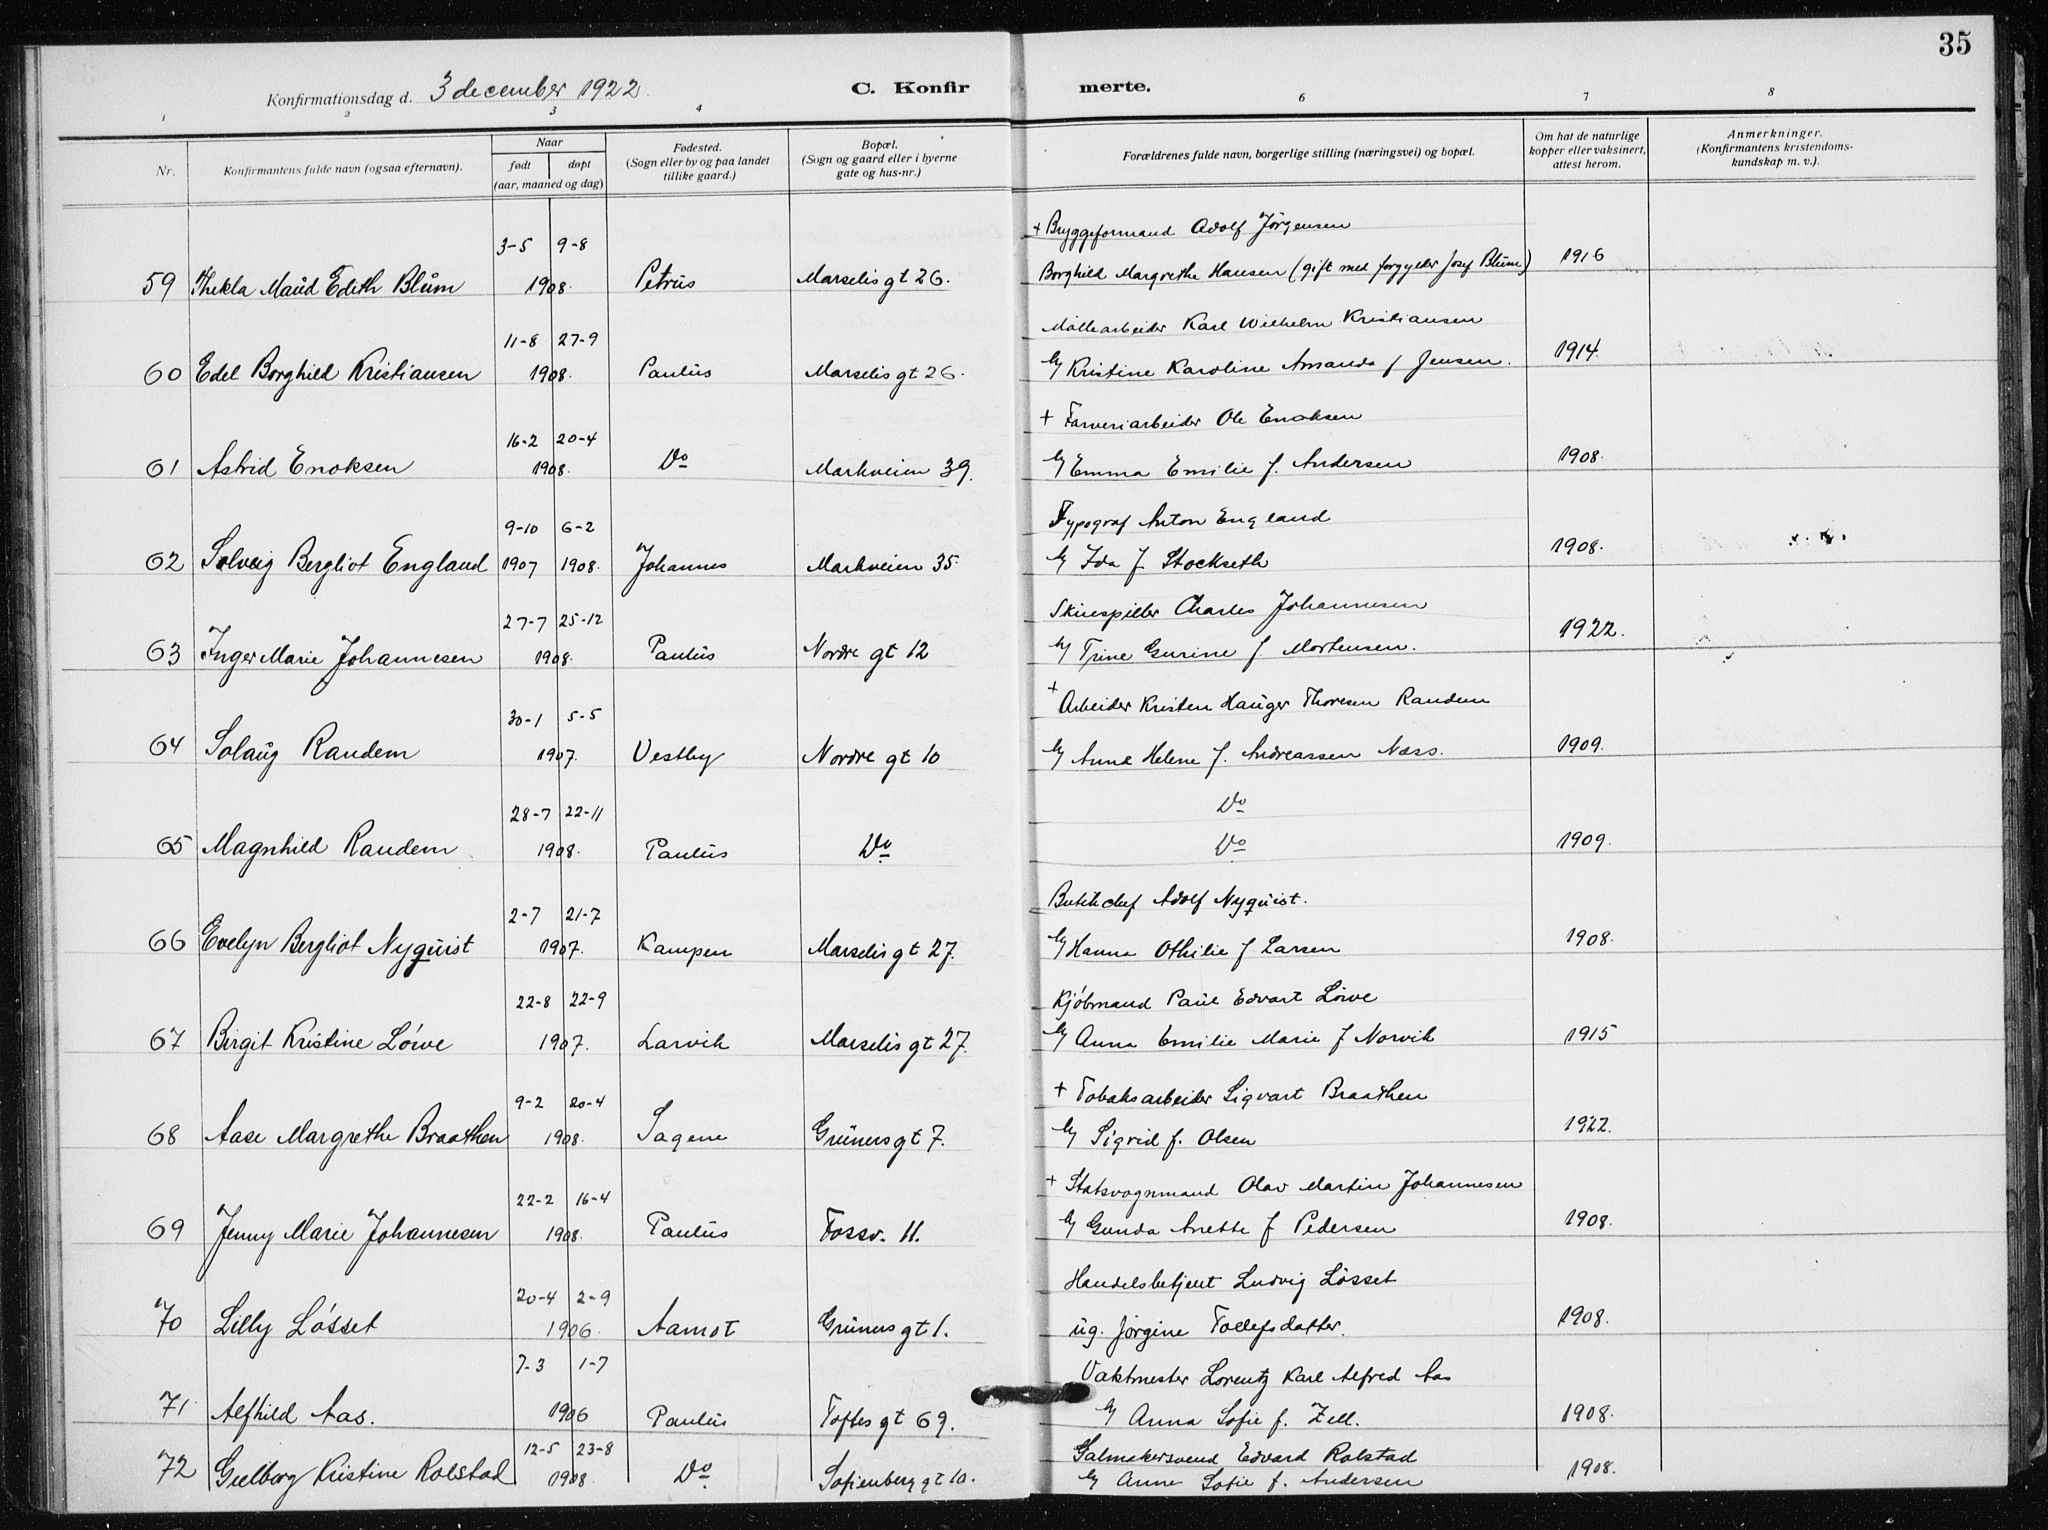 35
Konfirmationsdag d. 3 december 1922. C. Konfir merte.
1 2 3 4 6 7 8
Nr.
Konfirmantens fulde navn (ogsaa efternavn).
Naar
født døpt
(aar, maaned og dag)
Fødested.
(Sogn eller by og paa landet
tillike gaard.)
Bopæl.
(Sogn og gaard eller i byerne
gate og hus-nr.)
Forældrenes fulde navn, borgerlige stilling (næringsvei) og bopæl.
Om hat de naturlige
kopper eller vaksinert,
attest herom.
Anmerkninger.
(Konfirmantens kristendoms-
kundskap m. v.).
3-5 9-8 + Bryggeformand Adolf Jörgensen
59 Thekla Maud Edith Blum 1908. Petrus Marselis gt 26. Borghild Margrethe Hansen (gift med forgylder Josef Blum) 1916
11-8 27-9 Møllearbeider Karl Wilhelm Kristiansen
60 Edel Borghild Kristiansen 1908. Paulus Marselis gt 26. Kristine Karoline Amanda f Jensen. 1914.
16-2 20-4 + Farveriarbeider Ole Enoksen
61 Astrid Enoksen 1908. Do Markveien 39. Emma Emilie f. Andersen 1908.
9-10 6-2 Typograf Anton England
62 Solveig Bergliot England 1907 1908. Johannes Markveien 35. Ida f. Stockseth 1908.
27-7 25-12 Skuespiller Charles Johannesen
63 Inger Marie Johannesen 1908. Paulus Nordre gt 12 Trine Gurine f. Mortensen. 1922.
30-1 5-5 + Arbeider Kristen Hauger Thoresen Randem
64 Solaug Randem 1907. Vestby Nordre gt 10 Anne Helene f. Andreassen Næss. 1909.
28-7 22-11 Do
65 Magnhild Randem 1908. Paulus Do Do 1909.
2-7 21-7 Butikchef Adolf Nyquist.
66 Evelyn Bergliot Nyquist 1907. Kampen Marselis gt 27. Hanna Othilie f Larsen 1908.
22-8 22-9 Kjöbmand Paul Edvart Löwe
67 Birgit Kristine Löwe 1907. Larvik Marselis gt 27. Anna Emilie Marie f Norvik 1915
9-2 20-4 + Tobaksarbeider Sigvart Braathen
68 Aase Margrethe Braathen 1908. Sagene Grüners gt 7. Sigrid f. Olsen 1922.
22-2 16-4 + Statsvognmand Olav Martin Johannesen
69 Jenny Marie Johannesen 1908. Paulus Fossv. 11. Gunda Anette f Pedersen 1908.
20-4 2-9 Handelsbetjent Ludvig Lösset
70 Lilly Lösset 1906. Aamot Grüners gt 1. ug. Jørgine Tollefsdatter. 1908.
7-3 1-7 Vaktmester Lorentz Karl Alfred Aas
71 Alfhild Aas. 1906 Paulus Toftes gt 69. Anna Sofie f. Zell. 1908.
12-5 23-8 Salmakersvend Edvard Rolstad
72 Gulborg Kristine Rolstad 1908. Do Sofienberg gt 10. Anna Sofie f. Andersen 1908.